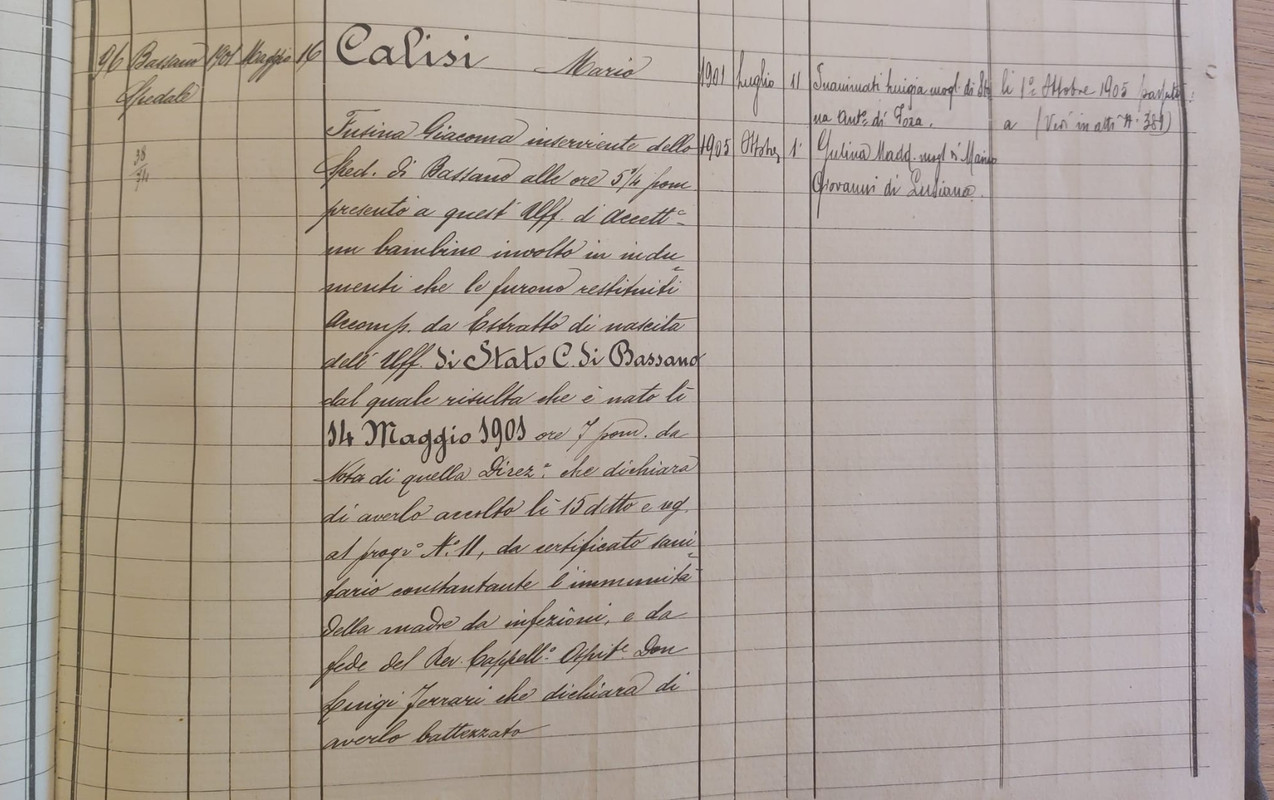 96 Bassano 1901 Maggio 16 Calisi Mario
Spedale
38
74
Fusina Giacoma inserviente dello
Sped. di Bassano alle ore 5¼ pom
presentò a quest' Uff. d' Accettᵉ
un bambino involto in indu
menti che le furono restituiti
Accomp. da Estratto di nascita
dell' Uff. di Stato C. di Bassano
dal quale risulta che è nato li
14 Maggio 1901 ore 7 pom. da
Nota di quella Direzᵉ. che dichiara
di averlo accolto li 15 ditto e
al progᵛᵒ Nº. 11, da certificato sani
tario constantante l'immunità
della madre da infezioni, e da
fede del Rev. Cappellº. Ospitᵉ Don
Luigi Ferrari che dichiara di
averlo battezzato
1901 Luglio 11 Luigia mogl. di
na Antº di Foza.
1905 Ottobre 1º Madd. mogl di
Giovanni di Lusiana.
li 1º Ottobre 1905
a (Vedi in atti Nº 381)